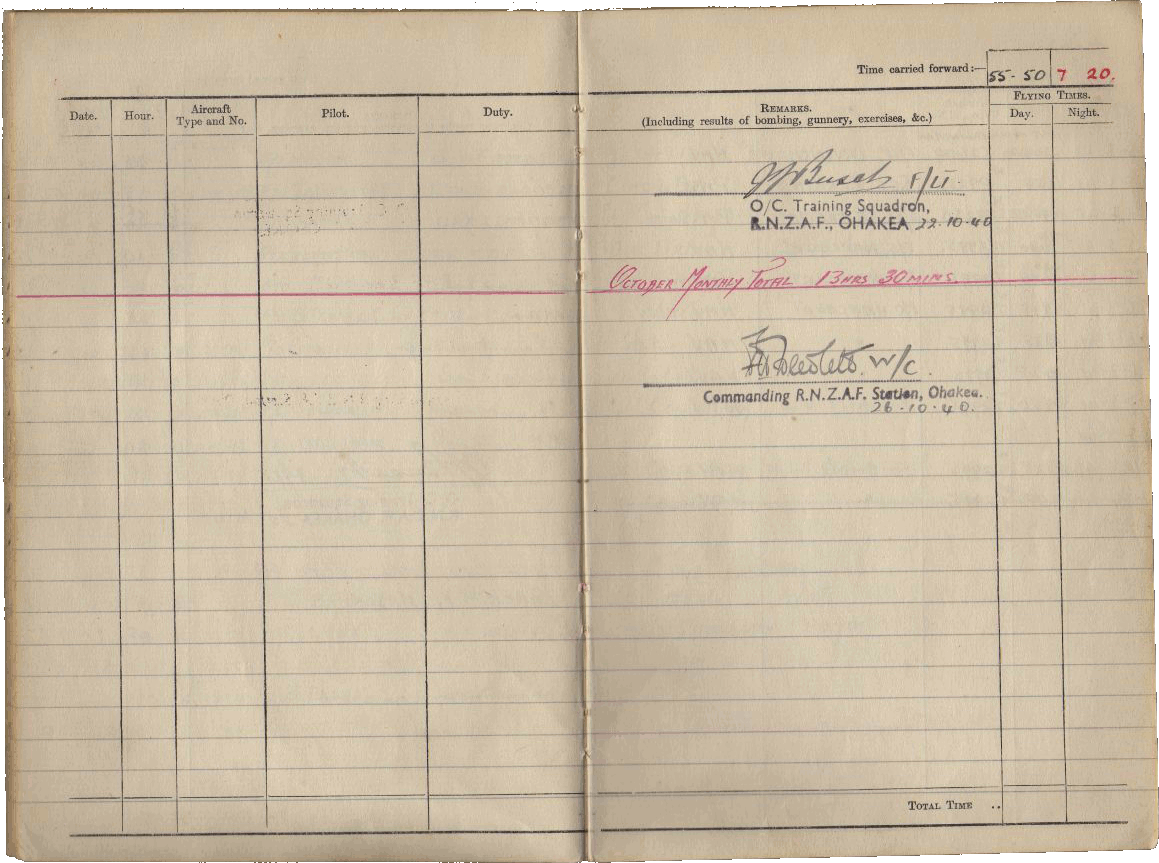 Time carried forward:— 55-50 7 20.
Date. Hour. Aircraft Type and No. Pilot. Duty. REMARKS. (Including results of bombing, gunnery, exercises, &c.) FLYING TIMES. Day. Night.
F/Lt.
O/C. Training Squadron,
R.N.Z.A.F., OHAKEA 22.10.40
OCTOBER MONTHLY TOTAL 13HRS 30MINS.
W/C.
Commanding R.N.Z.A.F. Station, Ohakea.
26.10.40.
TOTAL TIME ..